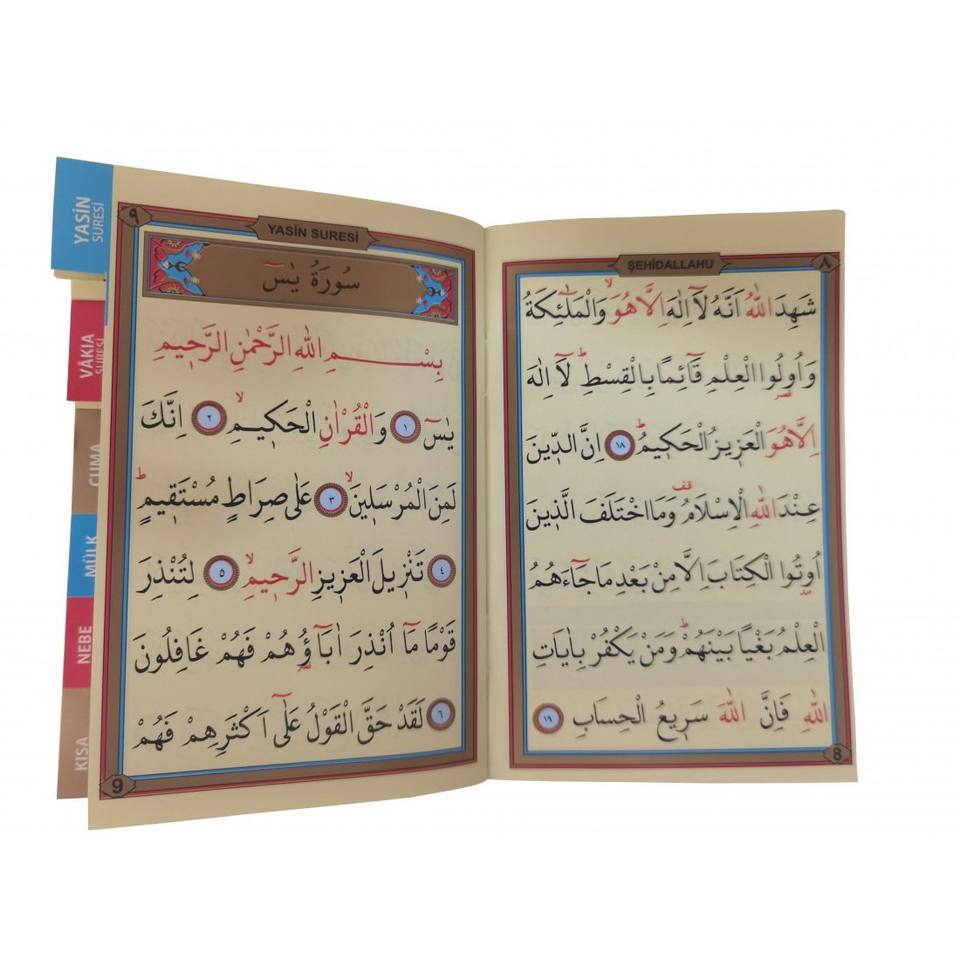 ŞEHİDALLAHU
٨
شَهِدَ اللّٰهُ اَنَّهُ لَٓا اِلٰهَ اِلَّا هُوَۙ وَالْمَلٰٓئِكَةُ
وَاُو۬لُوا الْعِلْمِ قَٓائِمًا بِالْقِسْطِۜ لَٓا اِلٰهَ
اِلَّا هُوَ الْعَز۪يزُ الْحَك۪يمُۜ ١٨ اِنَّ الدّ۪ينَ
عِنْدَ اللّٰهِ الْاِسْلَامُ۠ وَمَا اخْتَلَفَ الَّذ۪ينَ
اُو۫تُوا الْكِتَابَ اِلَّا مِنْ بَعْدِ مَا جَٓاءَهُمُ
الْعِلْمُ بَغْيًا بَيْنَهُمْۜ وَمَنْ يَكْفُرْ بِاٰيَاتِ
اللّٰهِ فَاِنَّ اللّٰهَ سَر۪يعُ الْحِسَابِ ١٩
8
YASİN SURESİ
٩
سُورَةُ يٰسٓ
بِسْمِ اللّٰهِ الرَّحْمٰنِ الرَّح۪يمِ
يٰسٓ ١ وَالْقُرْاٰنِ الْحَك۪يمِۙ ٢ اِنَّكَ
لَمِنَ الْمُرْسَل۪ينَۙ ٣ عَلٰى صِرَاطٍ مُسْتَق۪يمٍۜ
٤ تَنْز۪يلَ الْعَز۪يزِ الرَّح۪يمِۙ ٥ لِتُنْذِرَ
قَوْمًا مَٓا اُنْذِرَ اٰبَٓاؤُ۬هُمْ فَهُمْ غَافِلُونَ
٦ لَقَدْ حَقَّ الْقَوْلُ عَلٰٓى اَكْثَرِهِمْ فَهُمْ
9
YASİN
SURESİ
VÂKIA
SURESİ
CUMA
MÜLK
NEBE
KISA